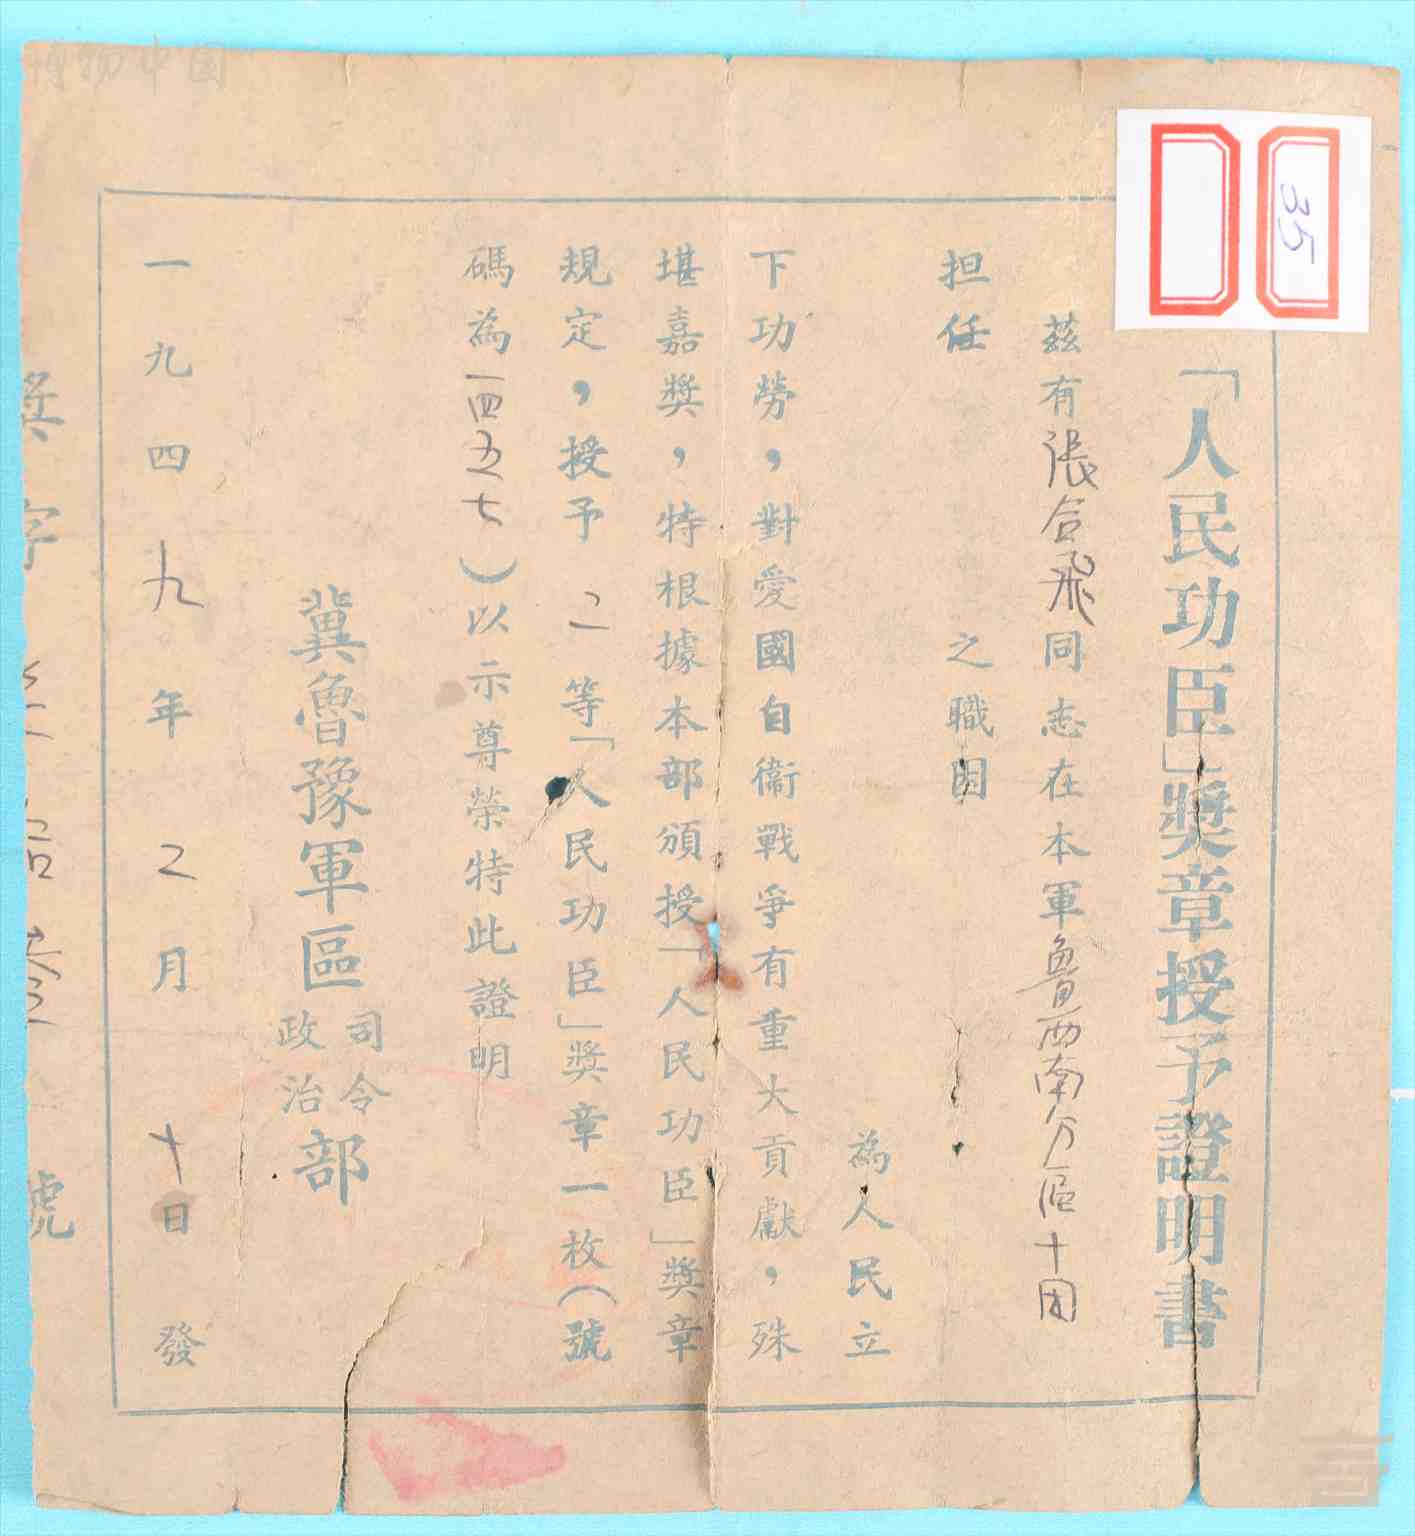 「人民功臣」獎章授予證明書
茲有張合飛同志在本軍魯西南分區十团
担任 之職因
為人民立
下功勞，對愛國自衞戰爭有重大貢獻，殊
堪嘉獎，特根據本部頒授「人民功臣」獎章
規定，授予二等「人民功臣」獎章一枚（號
碼為一四五七）以示尊榮特此證明
冀魯豫軍區司令政治部
一九四九年2月十日發
獎字 號
35
博物中国